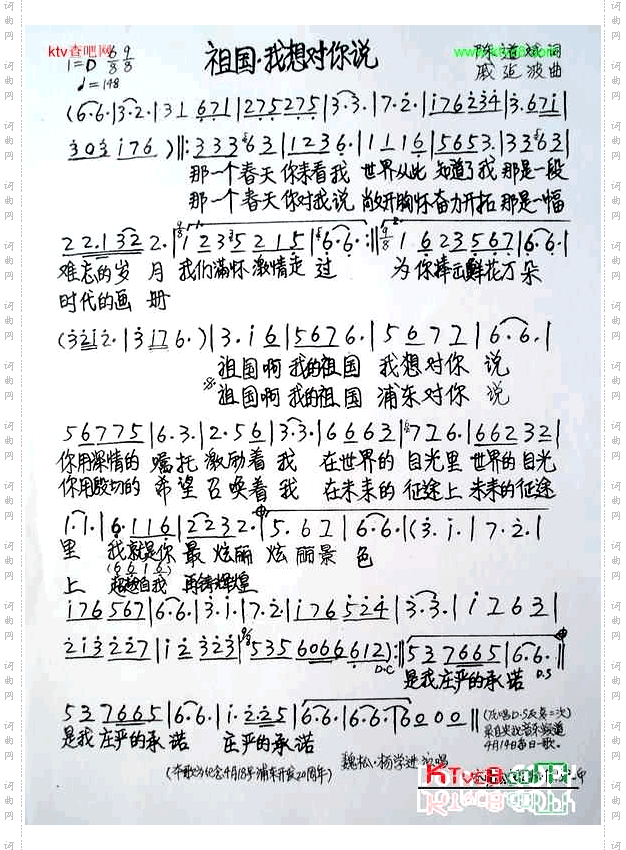 ktv查吧网
祖国·我想对你说
1=D 6/8 9/8
♩=148
词
戚延波曲
(6·6·|3·2·|31 671|275275|3·3·|7·2·|176234|3·671|
303176)‖:333563|1236·|1116|5653·|33563|
那一个春天你来看我 世界从此 知道了我 那是一段
那一个春天你对我说 敞开胸怀奋力开拓 那是一幅
22·132 2·|123 5215|6·6·:‖1 623567|6·6·|
难忘的岁 月 我们满怀激情走 过 为你捧出鲜花万朵
时代的画 册
(3212·|3176·)|3·16|5676·|5 677|6·6·|
祖国啊 我的祖国 我想对你 说
※祖国啊 我的祖国 浦东对你 说
56775|6·3·|2·56|3·3·|6663|726·|66232|
你用深情的 嘱托 激励着 我 在世界的 目光里 世界的目光
你用殷切的 希望 召唤着 我 在未来的 征途上 未来的征途
1·1·|6·116|2232·|5·67|6·6·|(3·1·|7·2·|
里 我就是你 最 炫丽 炫丽景 色
(6616)
上 超越自我 再铸辉煌
176567|6·6·|3·1·|7·2|176524|3·3·|1763|
213227|12323|5356066612):‖537665|6·6·‖
D.C
D.S
是我庄严的承 诺
537665|6·6·|1·225|6·6·|6·6·|6000‖
(反唱D.S反复二次)
是我 庄严的承 诺 庄严的承 诺
4月19每日一歌。
魏松·杨学进 演唱
(本歌为纪念4月18号浦东开发20周年)
KTv8
词曲网